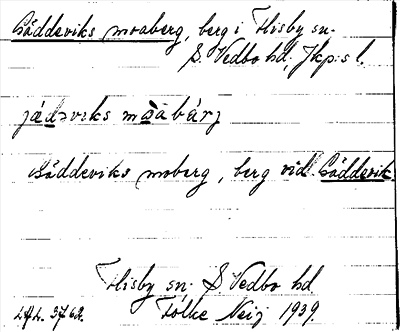 Gäddeviks moaberg, berg i Flisby sn.
S. Vedbo hd, Jkp:s l.
jádəviks mòabárj
Gäddeviks moberg, berg vid Gäddevik
Flisby sn. S. Vedbo hd
Folke Neij 1939.